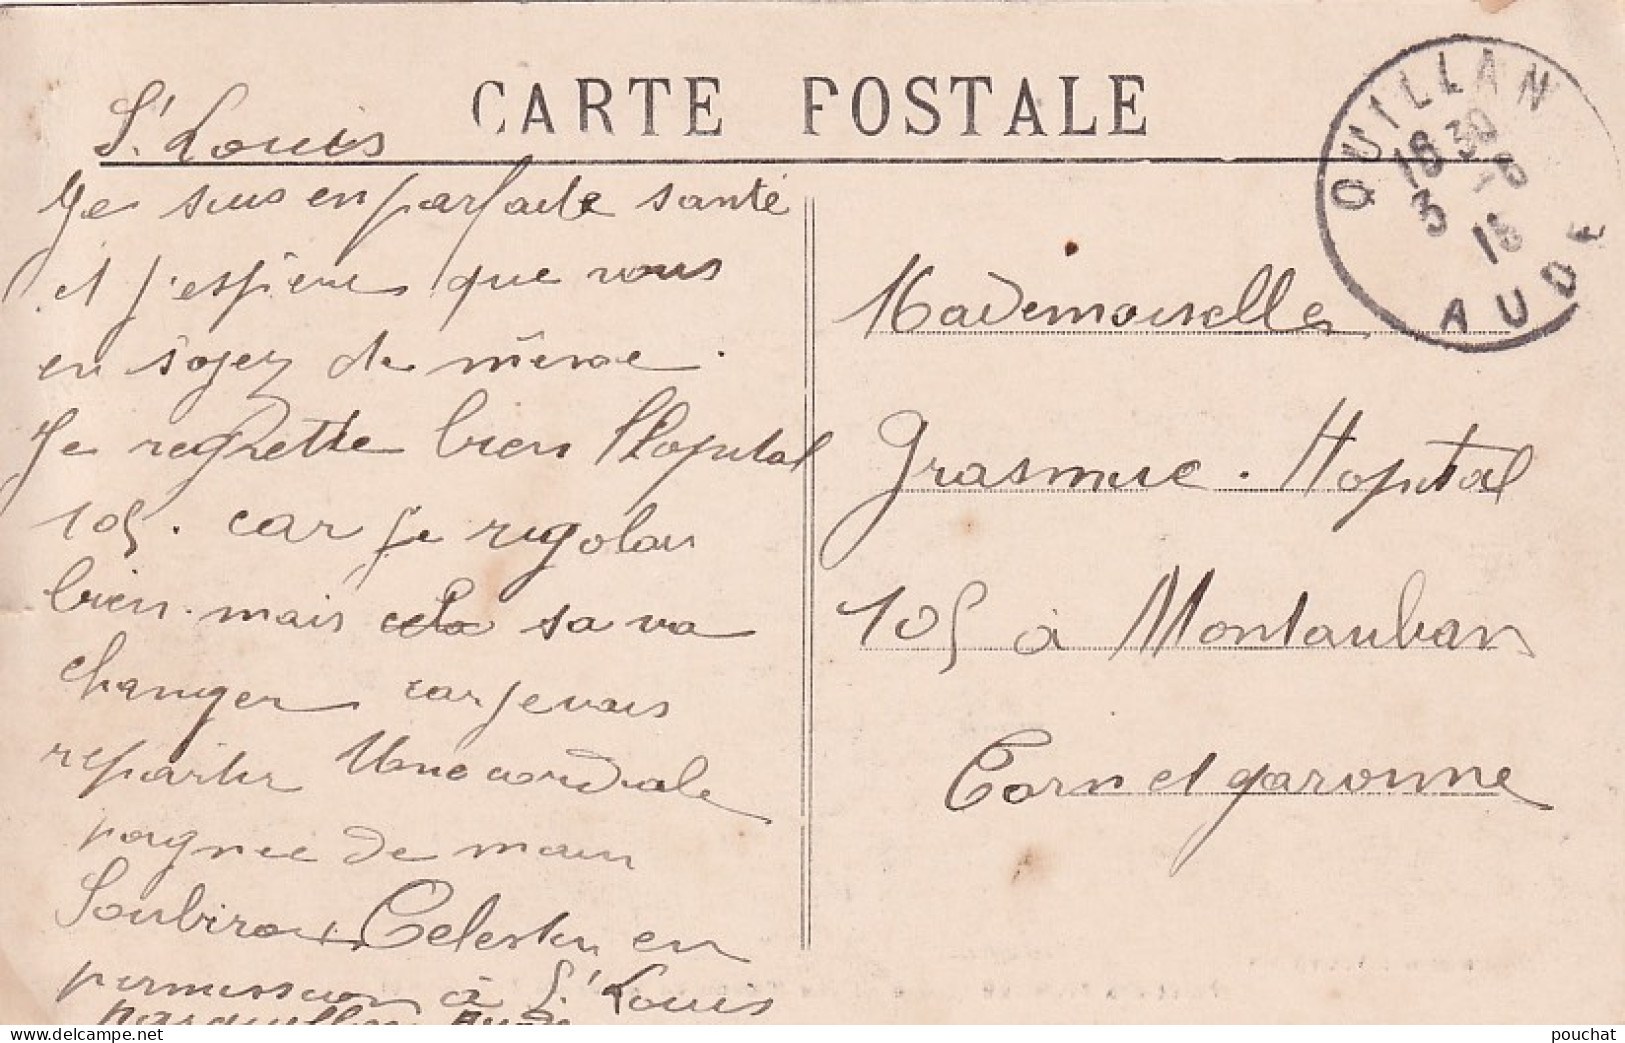 CARTE POSTALE
QUILLAN
18 30
3 - 6
15
AUDE
St Louis
Je suis en parfaite santé
et j'espère que vous
en soyez de même.
Je regrette bien l'hopital
105. car je rigolais
bien. mais cela sa va
changer car je vais
repartir Une cordiale
poignée de main
Soubiroux Celestin en
permission à St Louis
par Quillan Aude
Mademoiselle
Grasmuc. Hopital
105 à Montauban
Tarn et garonne
pouchat